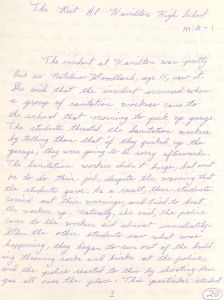 The Riot At Hamilton High School
M.A.-1
The incident at Hamilton was pretty
bad as Natalina Woodland, age 15, saw it.
She said that the incident occurred when
a group of sanitation workers came to
the school that morning to pick up garage.
The students threatd the sanitation workers
by telling them that if they picked up the
garage, they were going to be sorry afterwards.
The sanitation workers didn't budge, but went
on to do their job, despite the warning that
the students gave. As a result, these students
carried out their warnings, and tried to beat
the workers up. Naturally, she said, the police
came to the workers aid almost immediately.
When the other students saw what was
happening, they began to run out of the build-
ing throwing rocks and bricks at the police,
and the police reacted to this by shooting tear
gas all over the place. This particular student
1
20